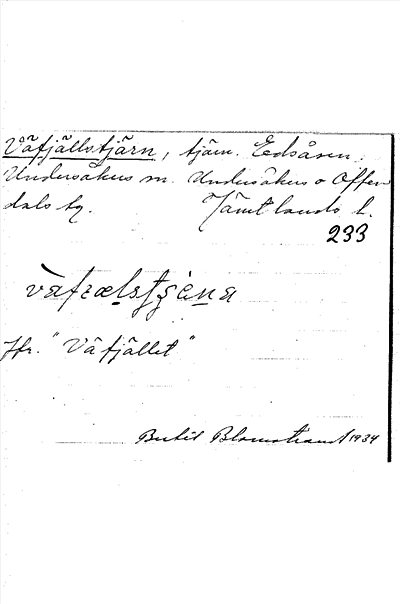 Väfjällstjärn, tjärn. Edsåsen.
Undersåkers sn. Undersåkers o Offer
dals tg. Jämtlands l.
233
vafræls
Jfr. "Väfjället"
Bertil Blomstrand 1934